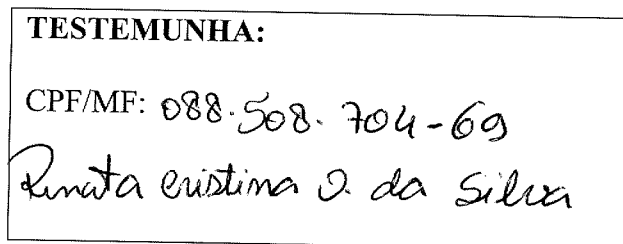 TESTEMUNHA:
CPF/MF: 088.508.704-69
Renata Cristina O. da Silva